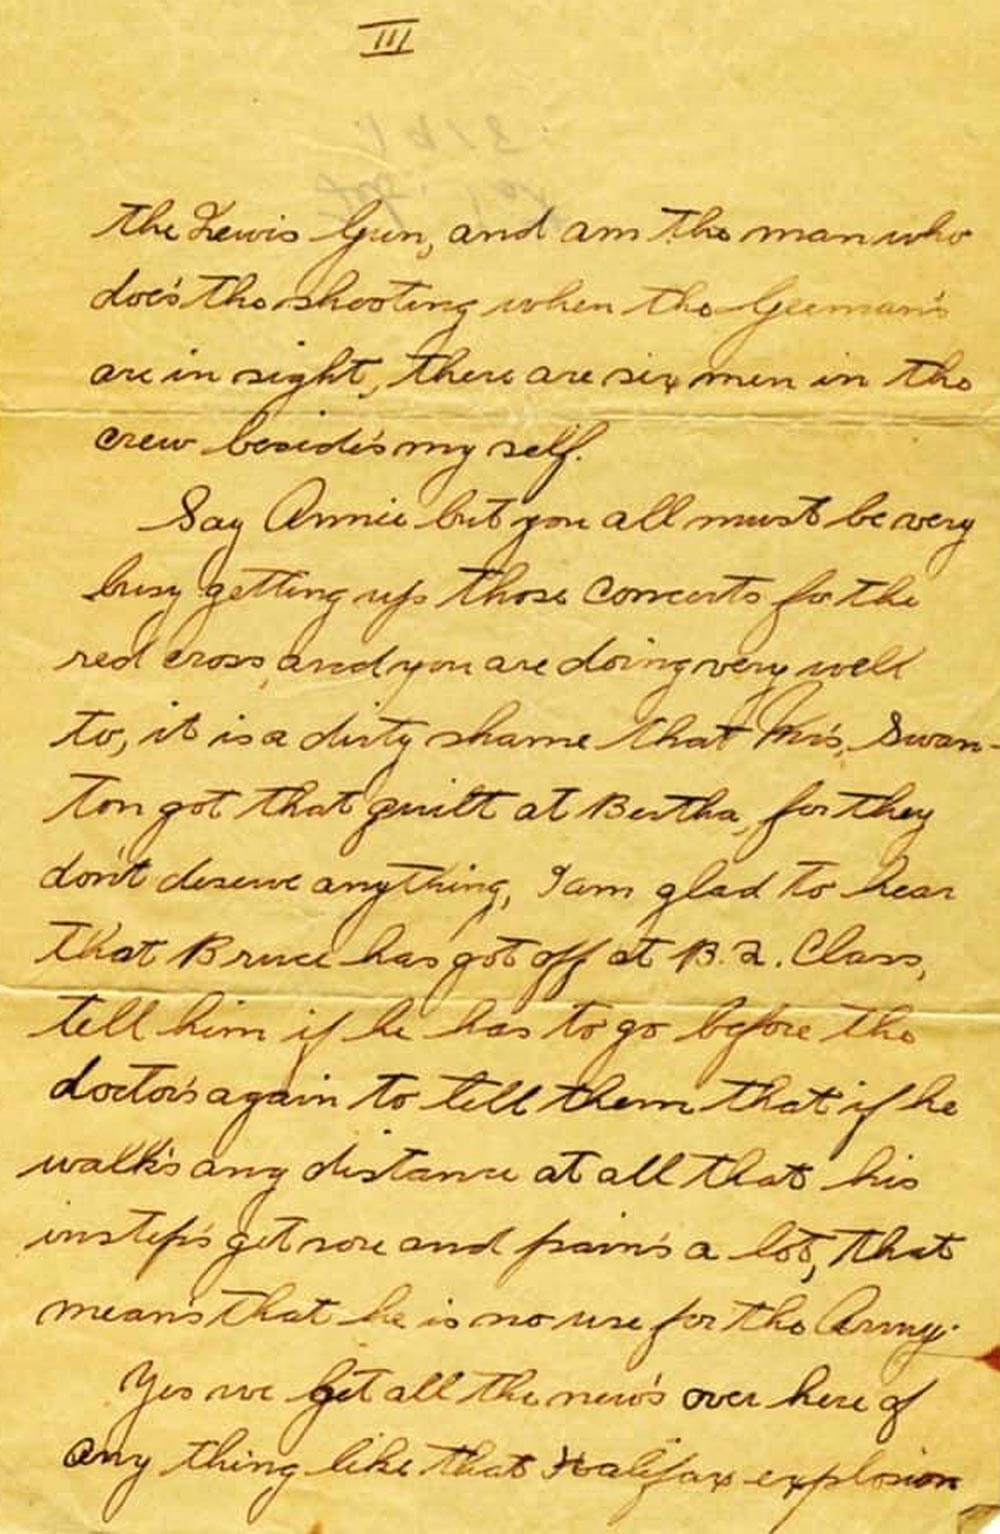 III
the Lewis Gun, and am the man who
does the shooting when the German's
are in sight, there are six men in the
crew beside's my self.
Say Annie but you all must be very
busy getting up those concerts for the
red cross, and you are doing very well
to, it is a dirty shame that Mrs, Swan-
ton got that quilt at Bertha, for they
don't deserve anything, I am glad to hear
that Bruce has got off at B.2. Class,
tell him if he has to go before the
doctor's again to tell them that if he
walk's any distance at all that his
instep's get sore and pain's a lot, that
mean's that he is no use for the Army.
Yes we get all the new's over here of
any thing like that Halifax explosion